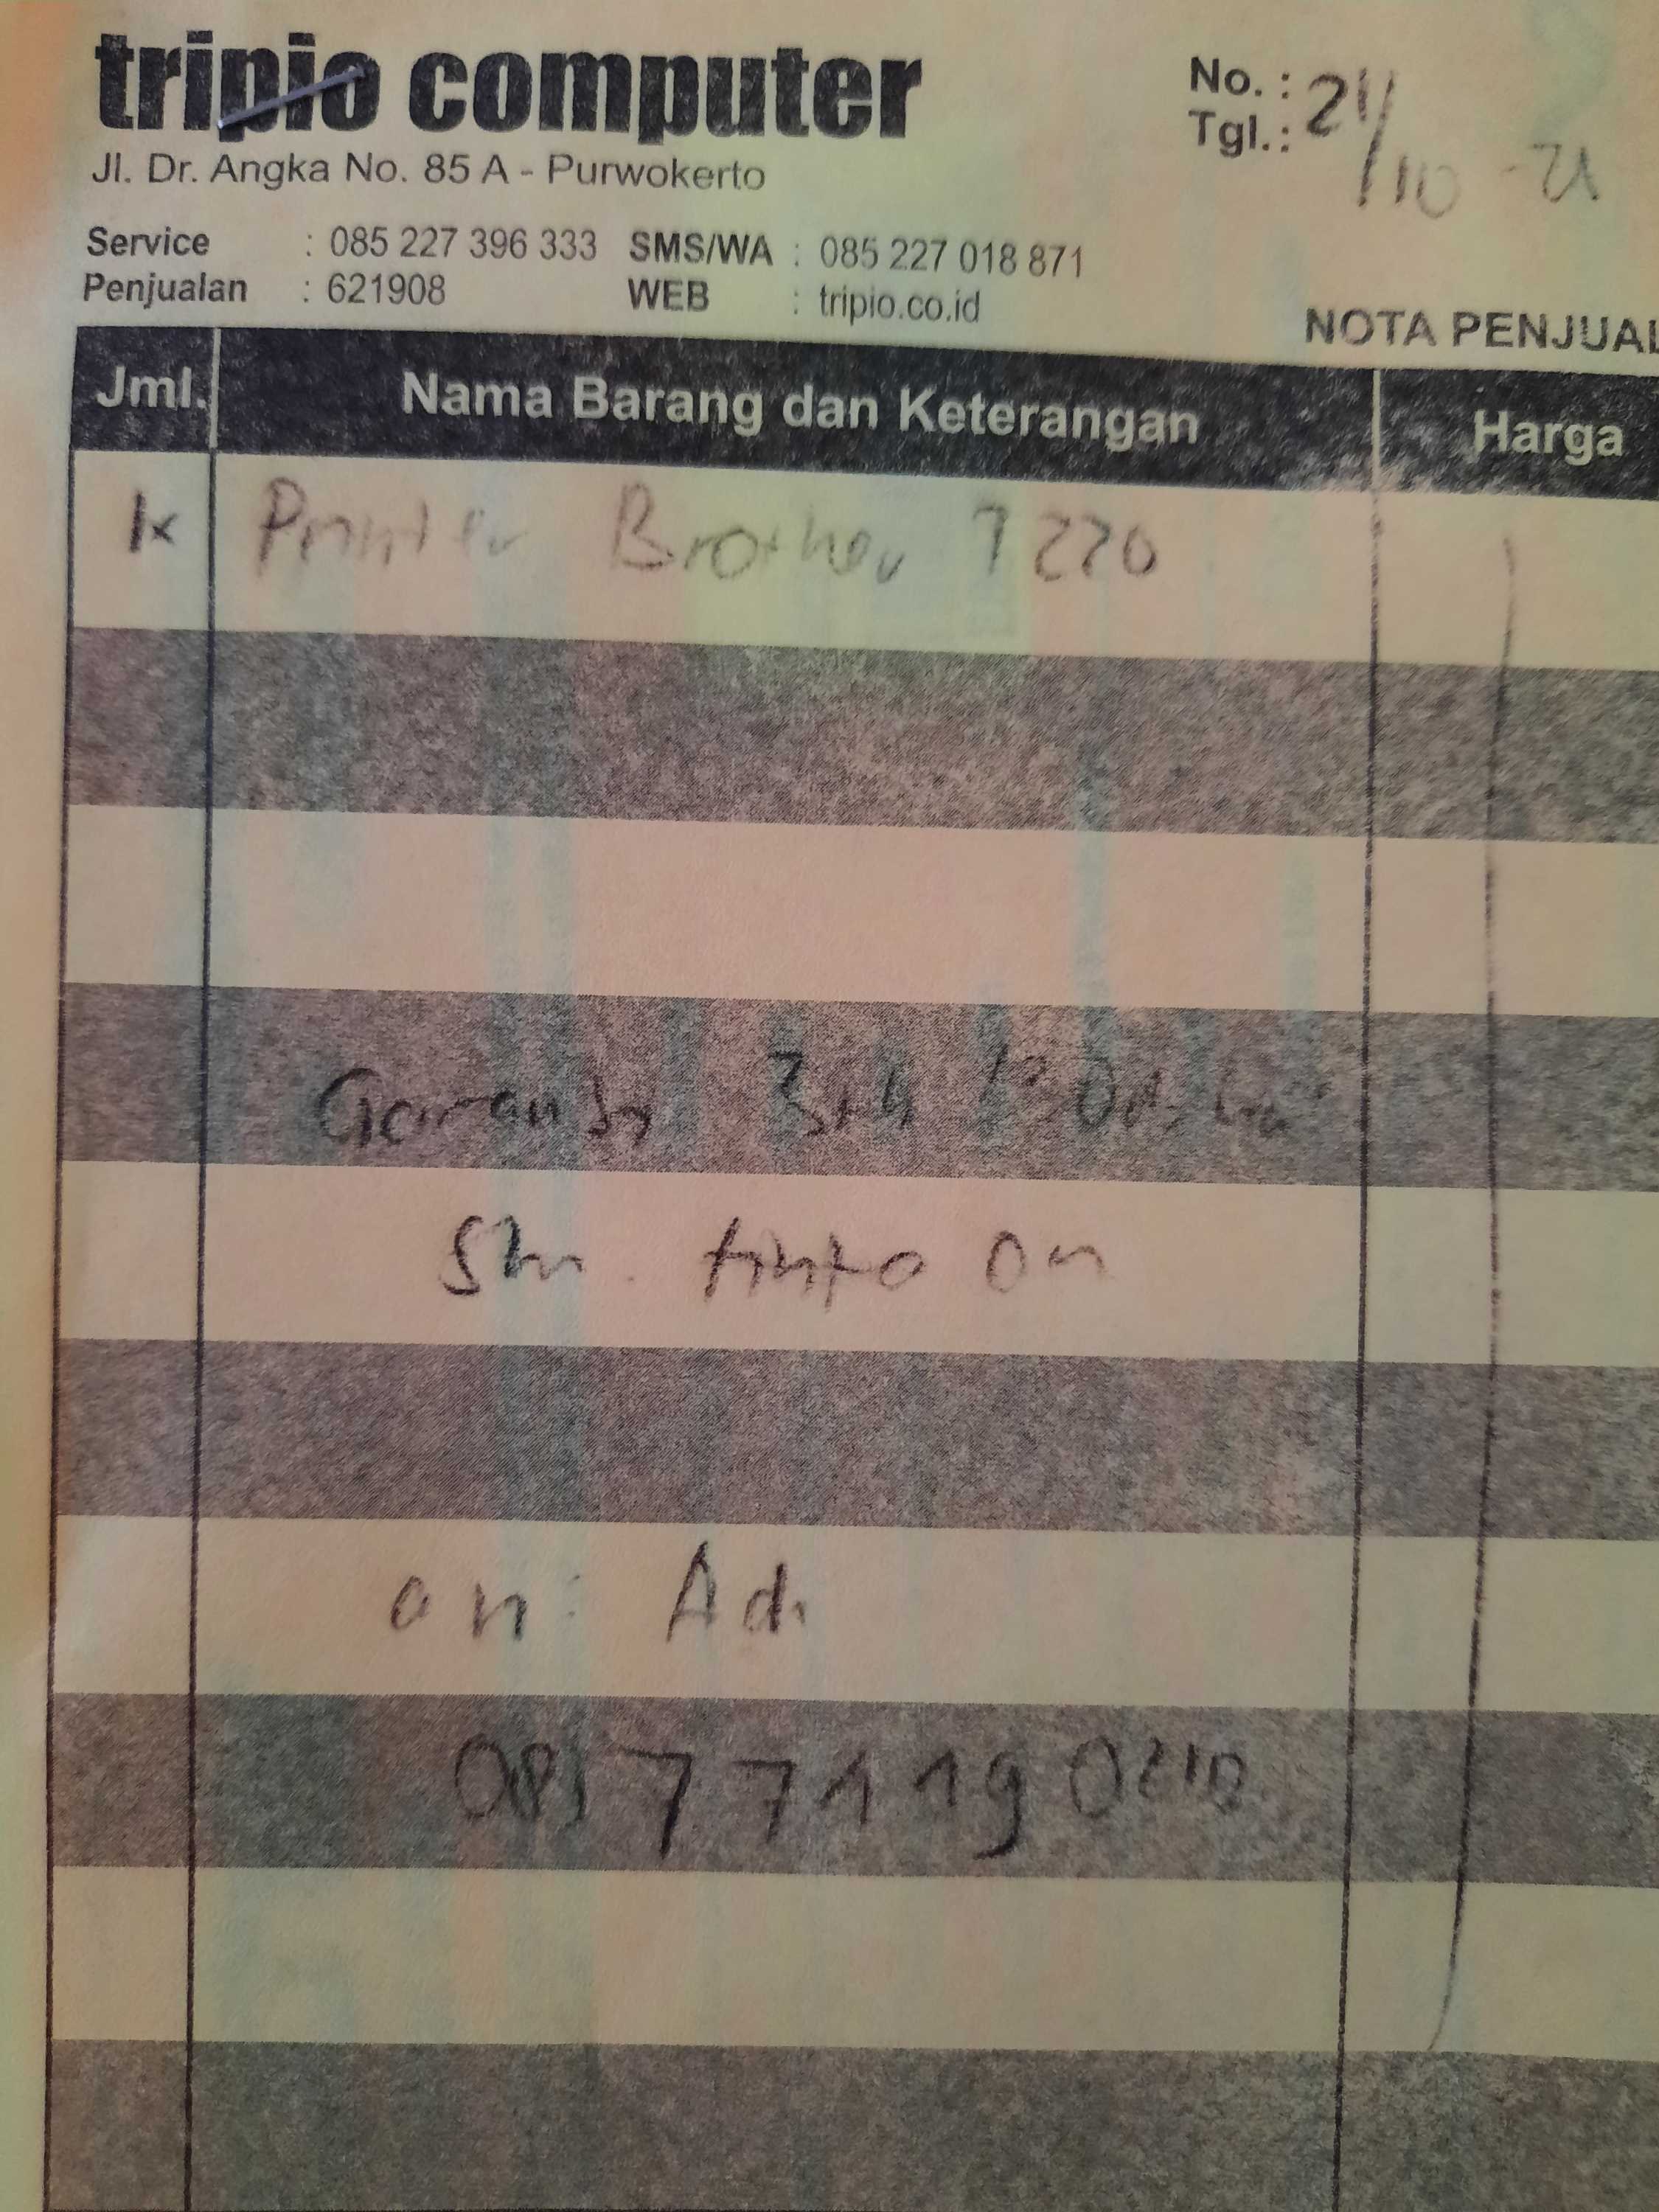 tripio computer
No. :
Tgl.: 21/10 -21
Jl. Dr. Angka No. 85 A - Purwokerto
Service : 085 227 396 333 SMS/WA : 085 227 018 871
Penjualan : 621908 WEB : tripio.co.id
NOTA PENJUAL
Jml. Nama Barang dan Keterangan Harga
1x Printer Brother T220
Garansi
tinta on
an: Adi